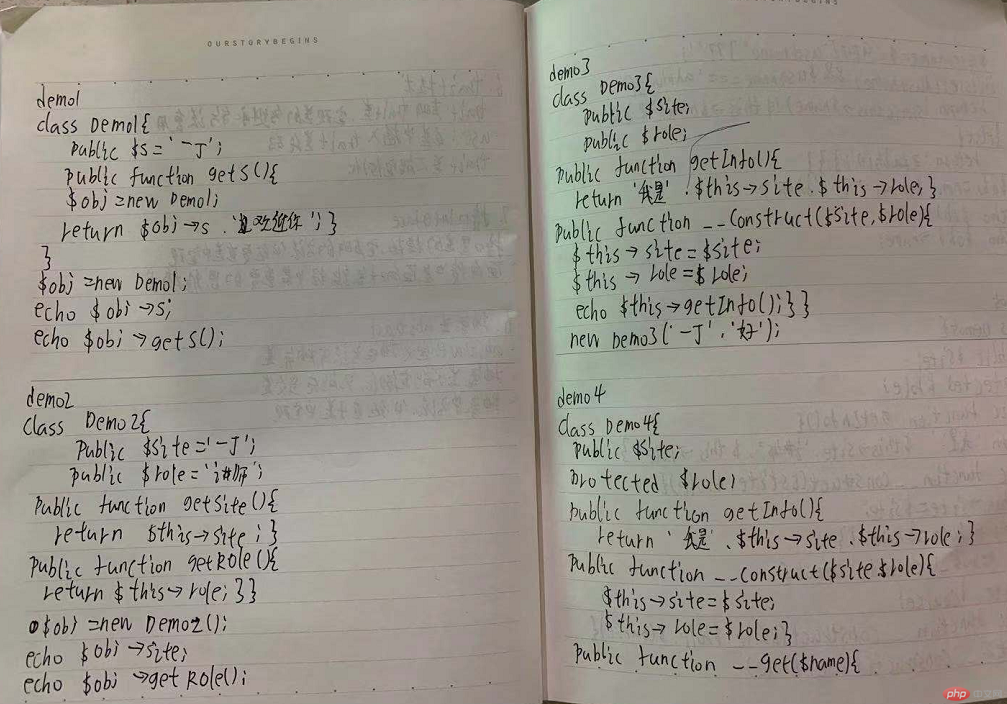 OURSTORYBEGINS
demo1
class Demo1{
public $s='一J';
public function getS(){
$obj=new Demo1;
return $obj->s.'欢迎你';}
}
$obj=new Demo1;
echo $obj->s;
echo $obj->getS();
demo2
class Demo2{
public $site='一J';
public $role='讲师';
public function getSite(){
return $this->site;}
public function getRole(){
return $this->role;}}
$obj=new Demo2();
echo $obj->site;
echo $obj->getRole();
demo3
class Demo3{
public $site;
public $role;
public function getInfo(){
return '我是'.$this->site.$this->role;}
public function __Construct($site,$role){
$this->site=$site;
$this->role=$role;
echo $this->getInfo();}}
new Demo3('一J','好');
demo4
class Demo4{
public $site;
protected $role;
public function getInfo(){
return '我是'.$this->site.$this->role;}
public function __Construct($site $role){
$this->site=$site;
$this->role=$role;}
public function __get($name){
php中文网